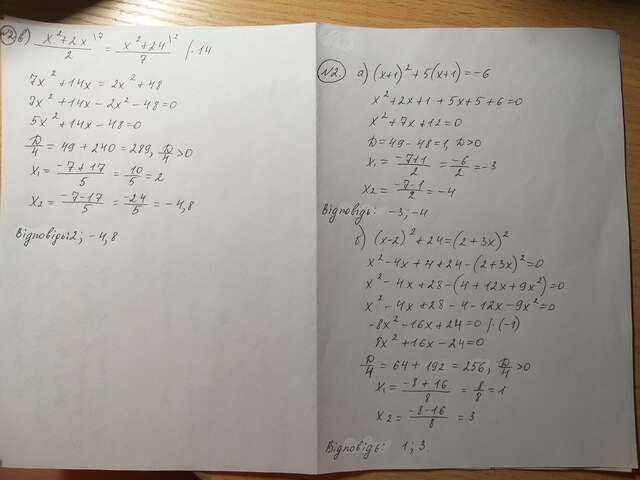 №2 в) (x²+2x)/2 \7 = (x²+24)/7 \2 |·14
7x²+14x = 2x²+48
7x²+14x-2x²-48=0
5x²+14x-48=0
D/4 = 49+240=289, D/4>0
x₁ = (-7+17)/5 = 10/5 = 2
x₂ = (-7-17)/5 = -24/5 = -4,8
Відповідь: 2; -4,8
№2. а) (x+1)²+5(x+1)=-6
x²+2x+1+5x+5+6=0
x²+7x+12=0
D=49-48=1, D>0
x₁ = (-7+1)/2 = -6/2 = -3
x₂ = (-7-1)/2 = -4
Відповідь: -3; -4
б) (x-2)²+24=(2+3x)²
x²-4x+4+24-(2+3x)²=0
x²-4x+28-(4+12x+9x²)=0
x²-4x+28-4-12x-9x²=0
-8x²-16x+24=0 |·(-1)
8x²+16x-24=0
D/4 = 64+192=256, D/4>0
x₁ = (-8+16)/8 = 8/8 = 1
x₂ = (-8-16)/8 = 3
Відповідь: 1; 3